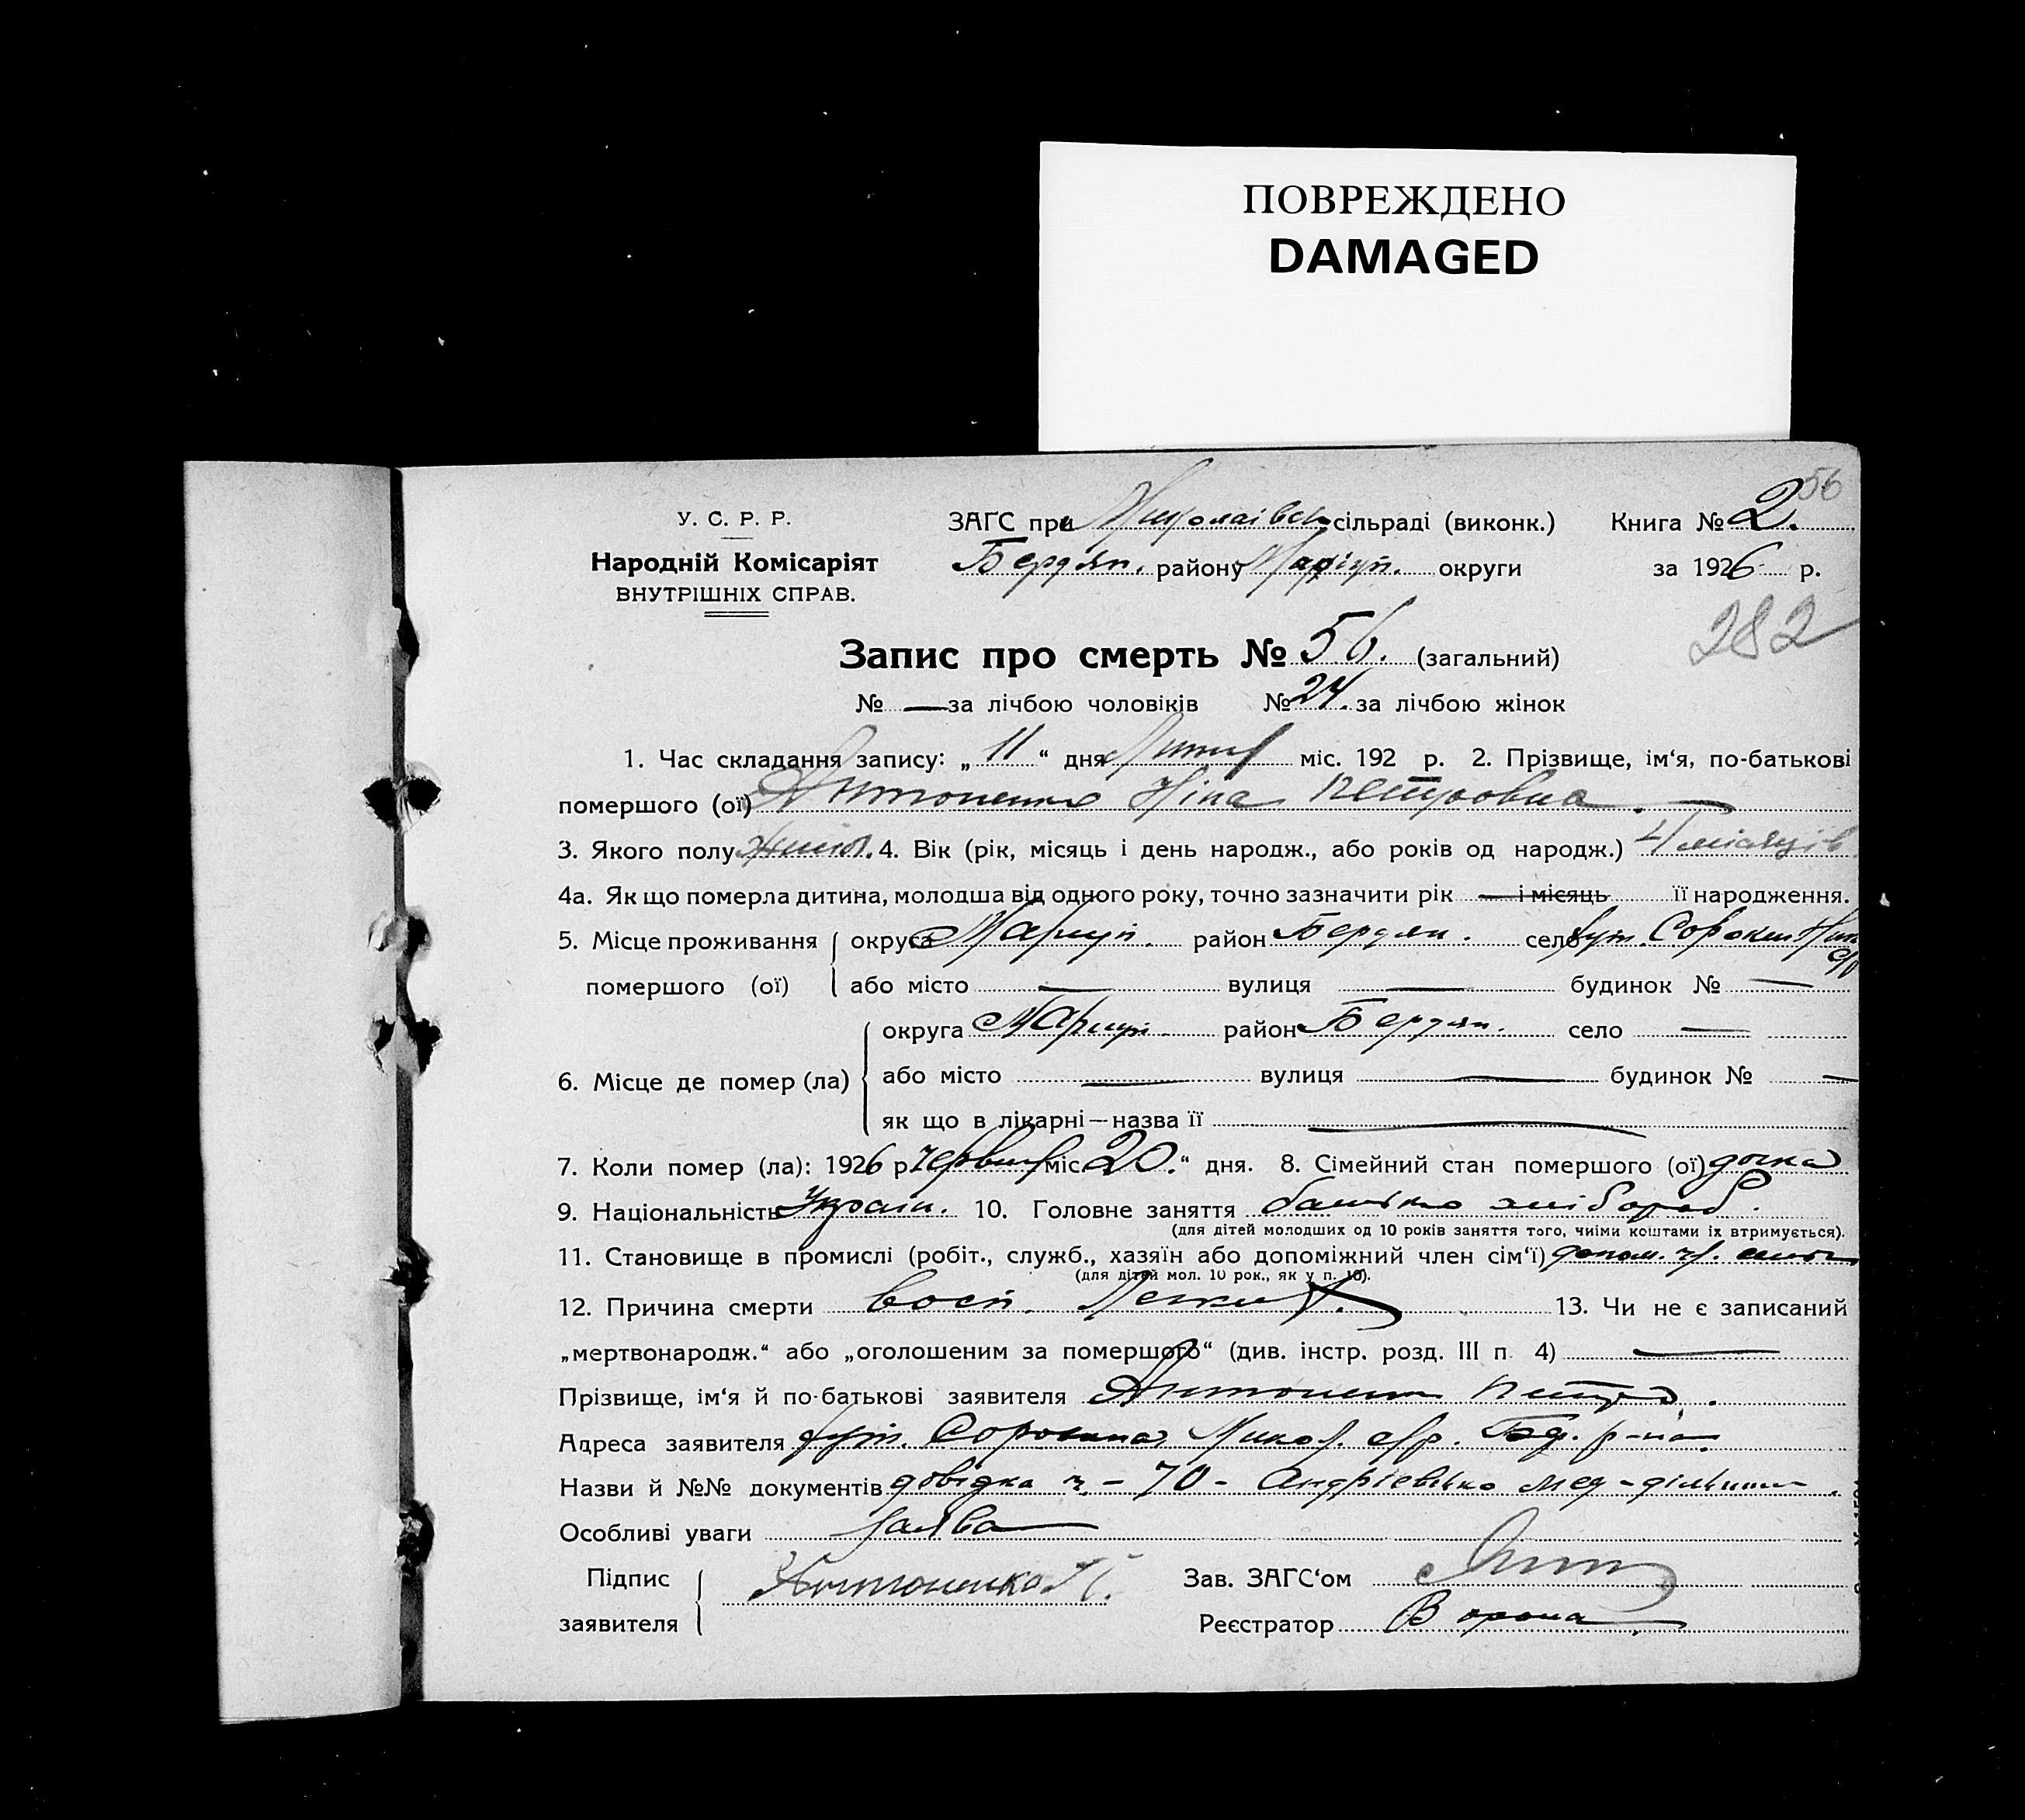 ПОВРЕЖДЕНО
DAMAGED
56
У. С. Р. Р.
Народній Комісаріят
ВНУТРІШНІХ СПРАВ.
ЗАГС при Миколаівск сільраді (виконк.) Книга № 2.
Бердян. району Маріуп. округи за 1926 р.
282
Запис про смерть № 56. (загальний)
№ — за лічбою чоловіків № 24. за лічбою жінок
1. Час складання запису: „ 11 “ дня Липня міс. 192 р. 2. Прізвище, ім‘я, по-батькові
помершого (ої) Антоненко Ніна Петровна
3. Якого полу 4. Вік (рік, місяць і день народж., або років од народж.) 4 місяців
4а. Як що померла дитина, молодша від одного року, точно зазначити рік — і місяць її народження.
5. Місце проживання округа Маріуп. район Бердян. село хут. Сорокин
помершого (ої) або місто — вулиця — будинок № —
округа Маріуп. район Бердян. село —
6. Місце де помер (ла) або місто — вулиця — будинок № —
як що в лікарні — назва її —
7. Коли помер (ла): 1926 р. червня міс. 20. “ дня. 8. Сімейний стан помершого (ої) дочка
9. Національність Украін. 10. Головне заняття батько хлібороб.
(для дітей молодших од 10 років заняття того, чиїми коштами їх втримується).
11. Становище в промислі (робіт., служб., хазяїн або допоміжний член сім‘ї) допом. чл.
(для дітей мол. 10 рок., як у п. 10).
12. Причина смерти восп. Легких. 13. Чи не є записаний
„мертвонародж.“ або „оголошеним за помершого“ (див. інстр. розд. III п 4) —
Прізвище, ім‘я й по-батькові заявителя Антоненко Петро.
Адреса заявителя хут. Сорокина Микол. с/р. Бд. р-на.
Назви й №№ документів довідка ч. - 70 - Андрієвсько мед-дільниці.
Особливі уваги Заява
Підпис Антоненко П. Зав. ЗАГС‘ом
заявителя Реєстратор Ворона